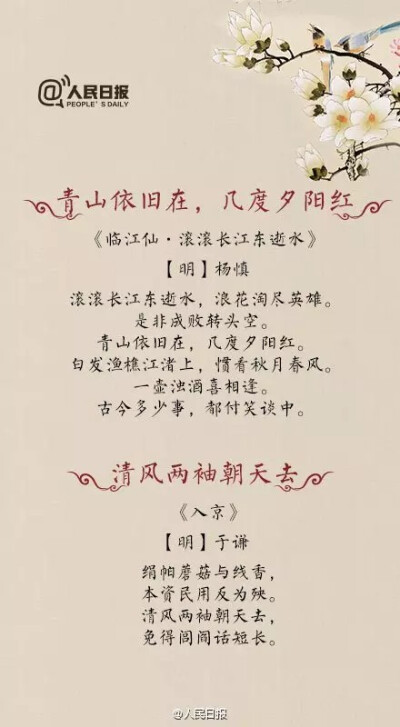 @人民日报
PEOPLE'S DAILY
青山依旧在，几度夕阳红
《临江仙·滚滚长江东逝水》
【明】杨慎
滚滚长江东逝水，浪花淘尽英雄。
是非成败转头空。
青山依旧在，几度夕阳红。
白发渔樵江渚上，惯看秋月春风。
一壶浊酒喜相逢。
古今多少事，都付笑谈中。
清风两袖朝天去
《入京》
【明】于谦
绢帕蘑菇与线香，
本资民用反为殃。
清风两袖朝天去，
免得闾阎话短长。
@人民日报